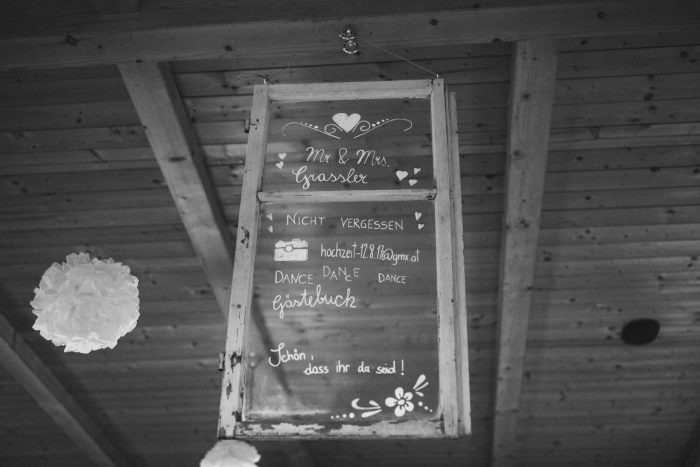 Mr & Mrs.
Grassler
NICHT VERGESSEN
hochzeit-12.8.17@gmx.at
DANCE DANCE DANCE
Gästebuch
Schön,
dass ihr da seid!